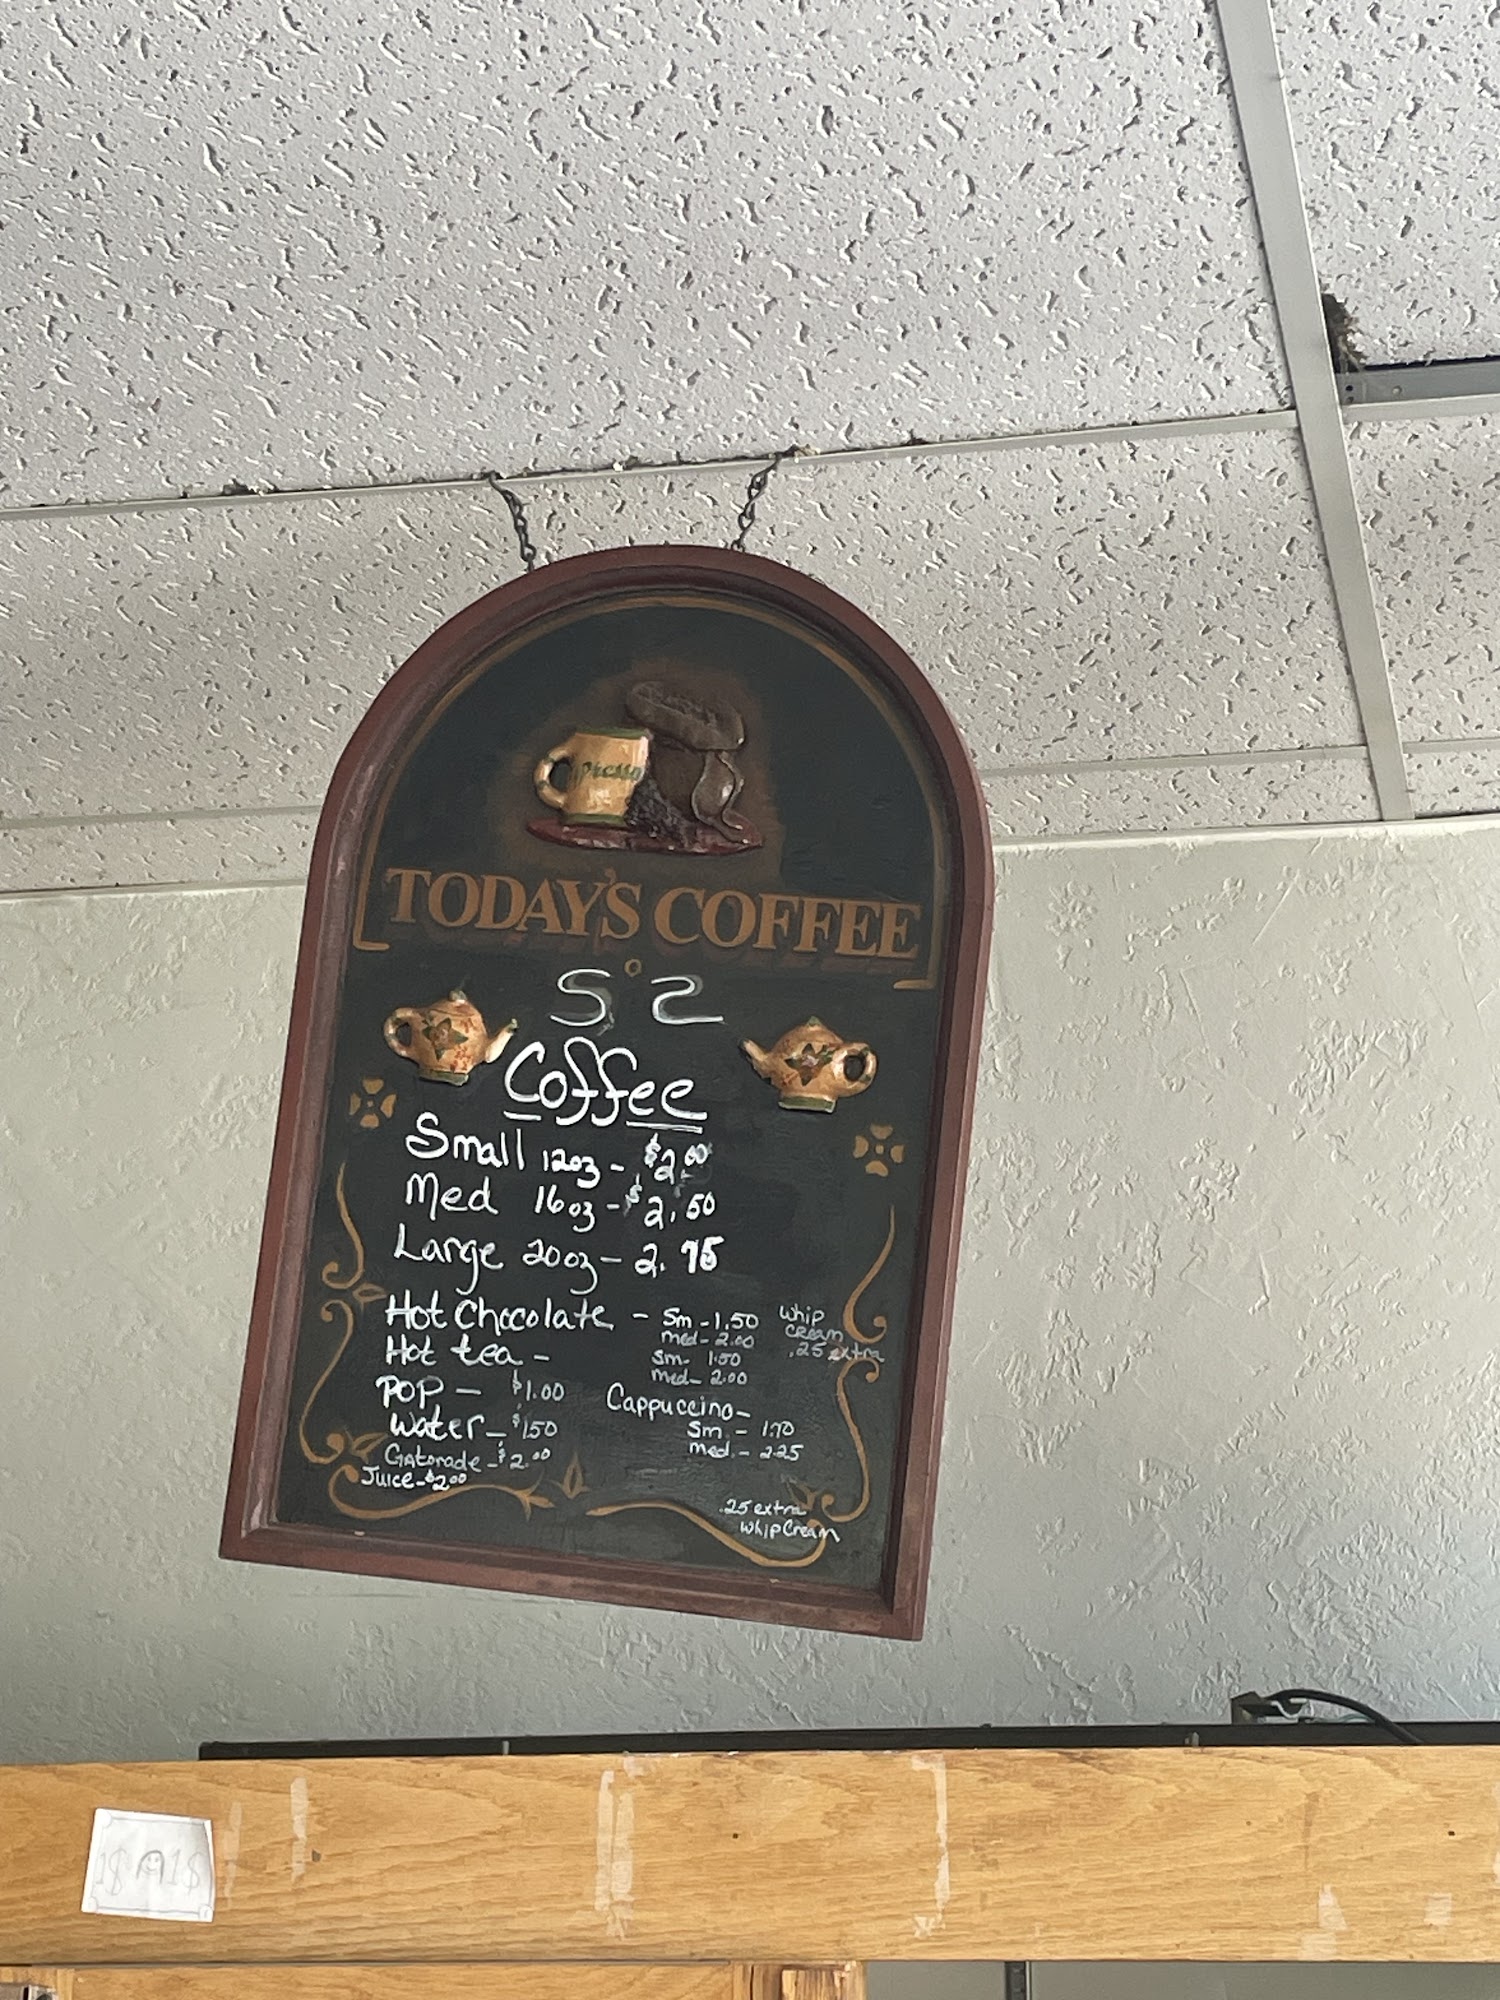 Presso
TODAY'S COFFEE
52
Coffee
Small 12oz - $2.00
Med 16oz - $2.50
Large 20oz - 2.75
Hot Chocolate - Sm - 1.50
med - 2.00
whip
cream
.25 extra
Hot tea -
Sm - 1.50
med - 2.00
POP - $1.00
Cappuccino -
Sm. - 1.70
med. - 2.25
Water - $1.50
Gatorade - $2.00
Juice - $2.00
.25 extra
whip Cream
1$ 1$